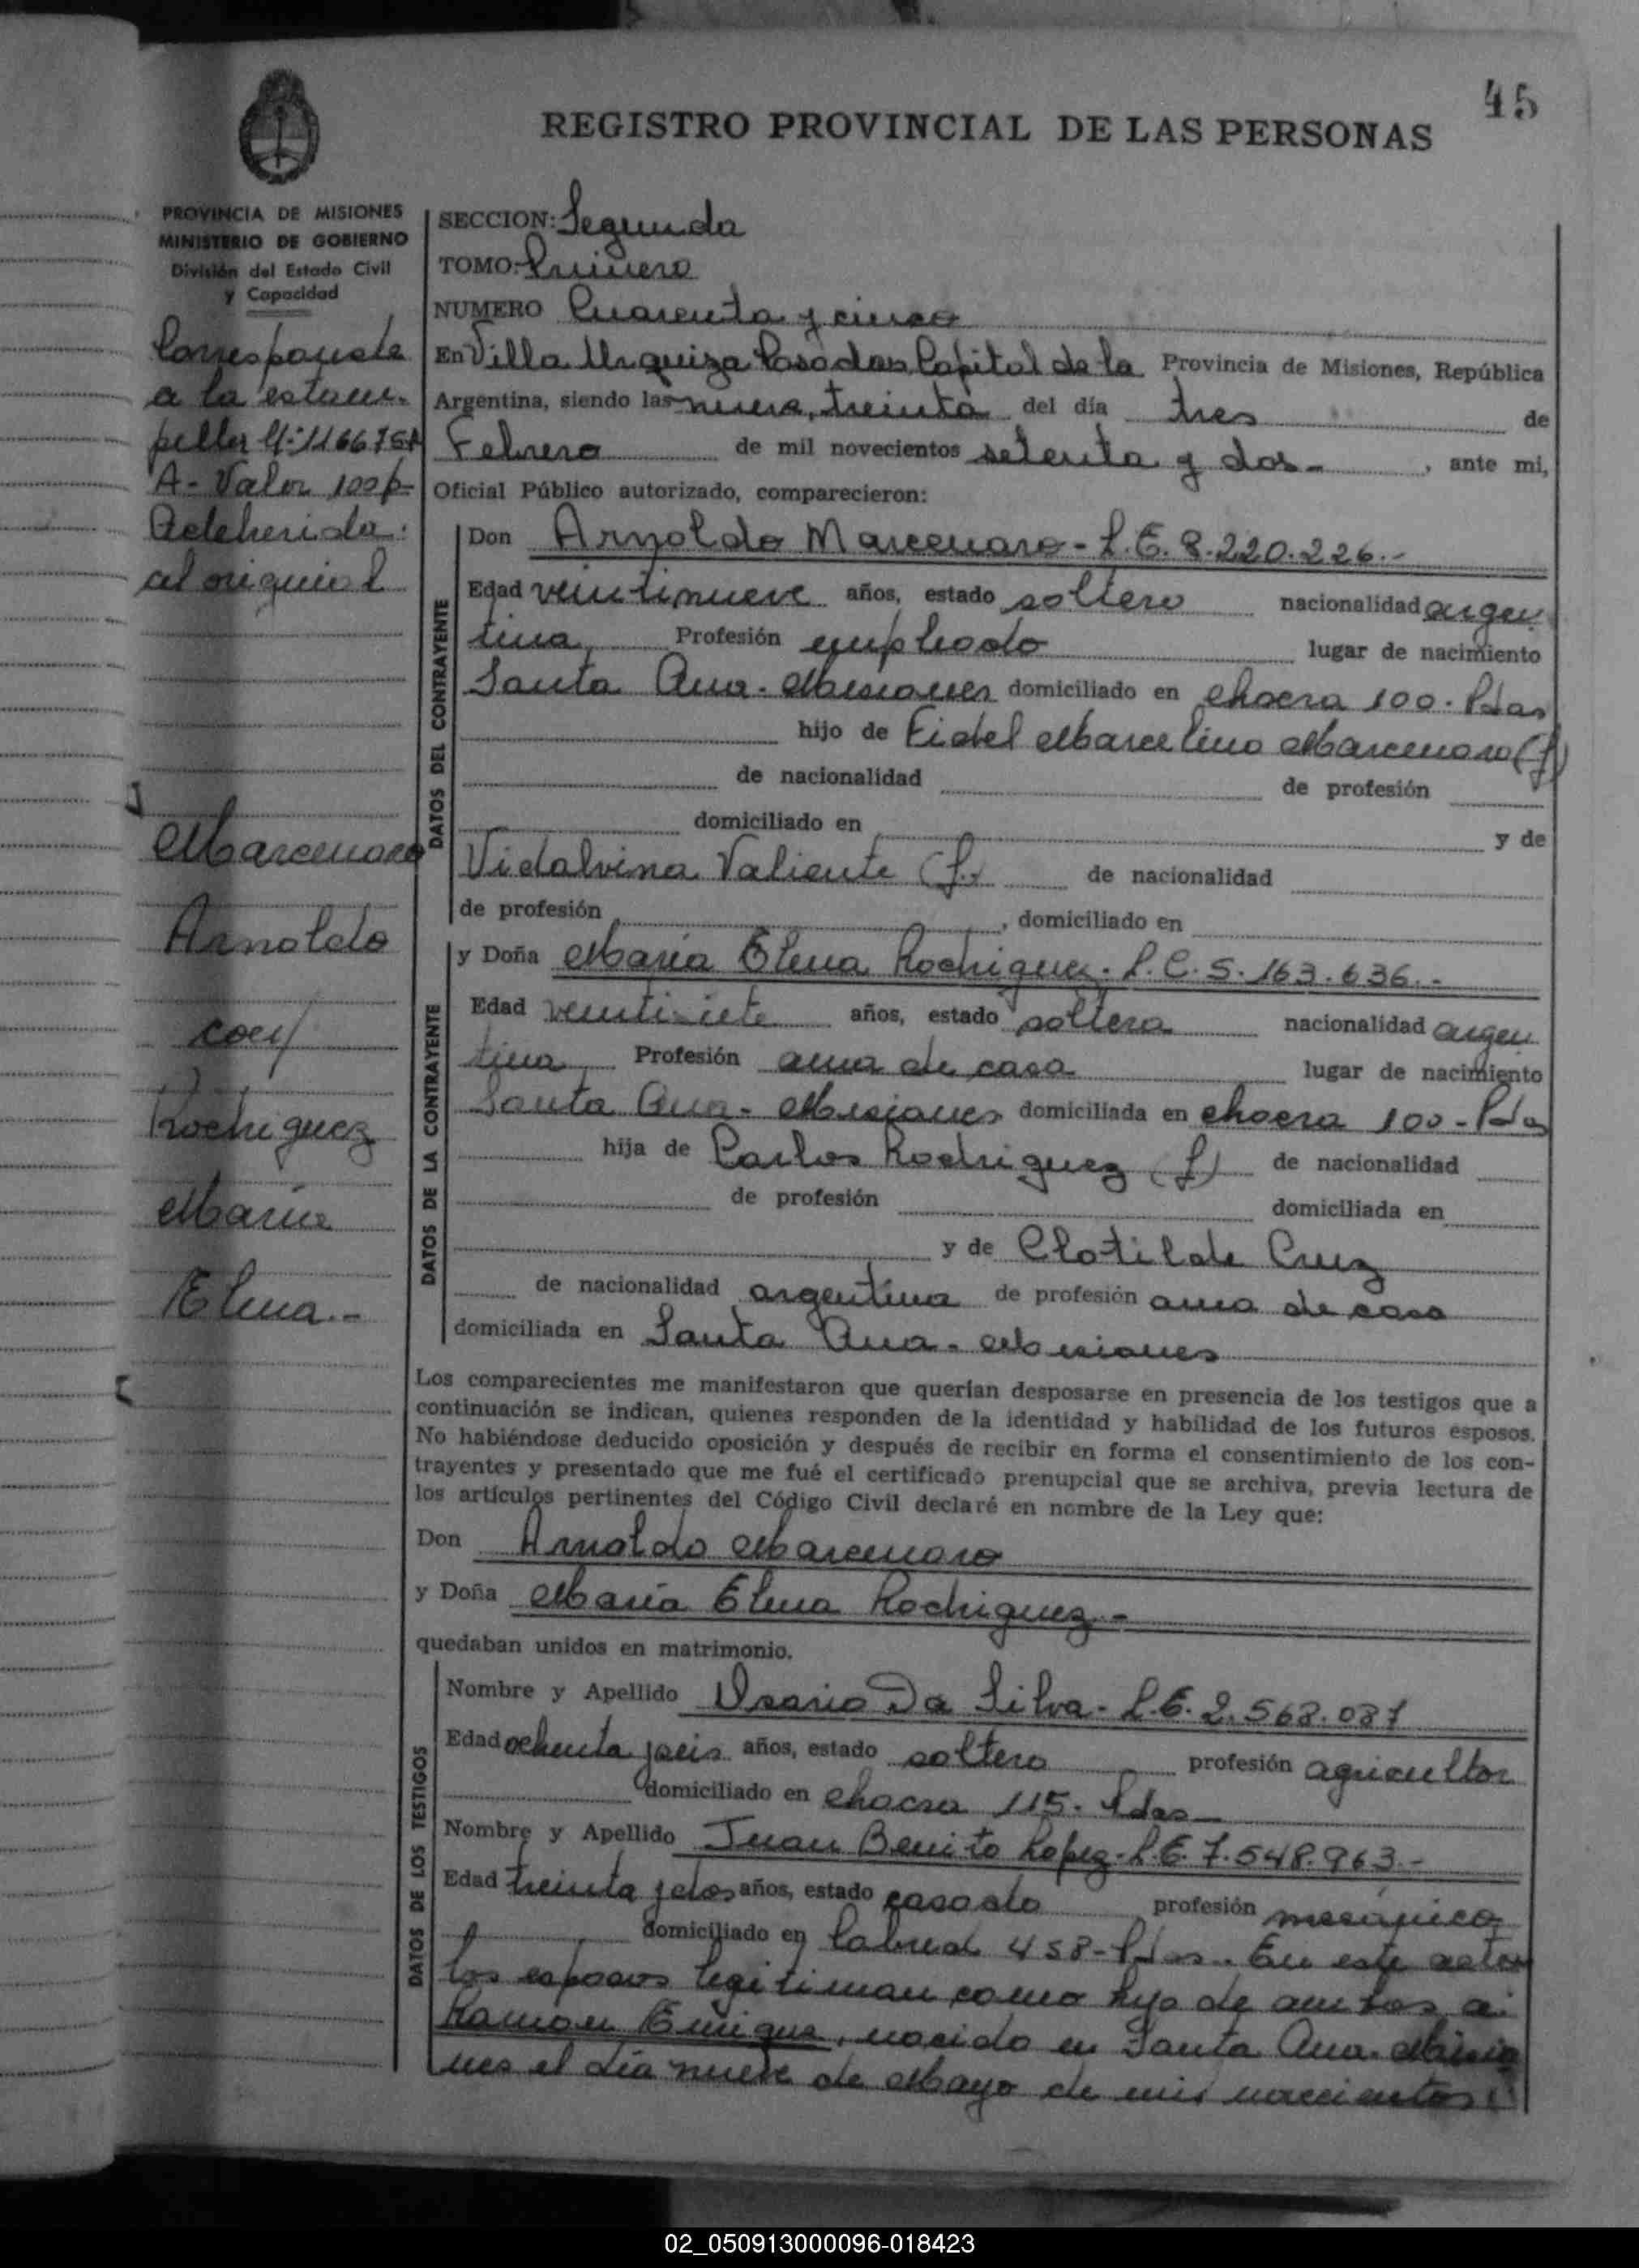 45
REGISTRO PROVINCIAL DE LAS PERSONAS
PROVINCIA DE MISIONES
MINISTERIO DE GOBIERNO
División del Estado Civil
y Capacidad
Corresponde
a la estam-
pilla Nº 116675
A- Valor 100 p-
Adeherida
al original
Marcenaro
Arnoldo
con
Rodriguez
María
Elena.-
SECCION: Segunda
TOMO: Primero
NUMERO Cuarenta y cinco
En Villa Urquiza Posadas Capital de la Provincia de Misiones, República
Argentina, siendo las nueve, treinta del día tres de
Febrero de mil novecientos setenta y dos- , ante mi,
Oficial Público autorizado, comparecieron:
DATOS DEL CONTRAYENTE
Don Arnoldo Marcenaro - L.E. 8.220.226.-
Edad veintinueve años, estado soltero nacionalidad argen
tina, Profesión empleado lugar de nacimiento
Santa Ana - Misiones domiciliado en chacra 100. Pdas
hijo de Fidel Marcelino Marcenaro (f)
de nacionalidad de profesión
domiciliado en y de
Vidalvina Valiente (f.) de nacionalidad
de profesión , domiciliado en
DATOS DE LA CONTRAYENTE
y Doña María Elena Rodriguez - L.C. 5.163.636.-
Edad veintisiete años, estado soltera nacionalidad argen
tina, Profesión ama de casa lugar de nacimiento
Santa Ana - Misiones domiciliada en chacra 100 - Pdas
hija de Carlos Rodriguez (f) de nacionalidad
de profesión domiciliada en
y de Clotilde Cruz
de nacionalidad argentina de profesión ama de casa
domiciliada en Santa Ana - Misiones
Los comparecientes me manifestaron que querían desposarse en presencia de los testigos que a
continuación se indican, quienes responden de la identidad y habilidad de los futuros esposos.
No habiéndose deducido oposición y después de recibir en forma el consentimiento de los con-
trayentes y presentado que me fué el certificado prenupcial que se archiva, previa lectura de
los artículos pertinentes del Código Civil declaré en nombre de la Ley que:
Don Arnoldo Marcenaro
y Doña María Elena Rodriguez -
quedaban unidos en matrimonio.
DATOS DE LOS TESTIGOS
Nombre y Apellido Da Silva - L.E. 2.568.087
Edad ochenta y seis años, estado soltero profesión agricultor
domiciliado en chacra 115. Pdas
Nombre y Apellido Juan Benito Lopez - L.E. 7.548.963.-
Edad treinta y dos años, estado casado profesión mecánico
domiciliado en Cabred 458 - Pdas. En este acto
los esposos legitiman como hijo de ambos a:
Ramon Enrique, nacido en Santa Ana - Misio
nes el día nueve de Mayo de mil novecientos
02_050913000096-018423